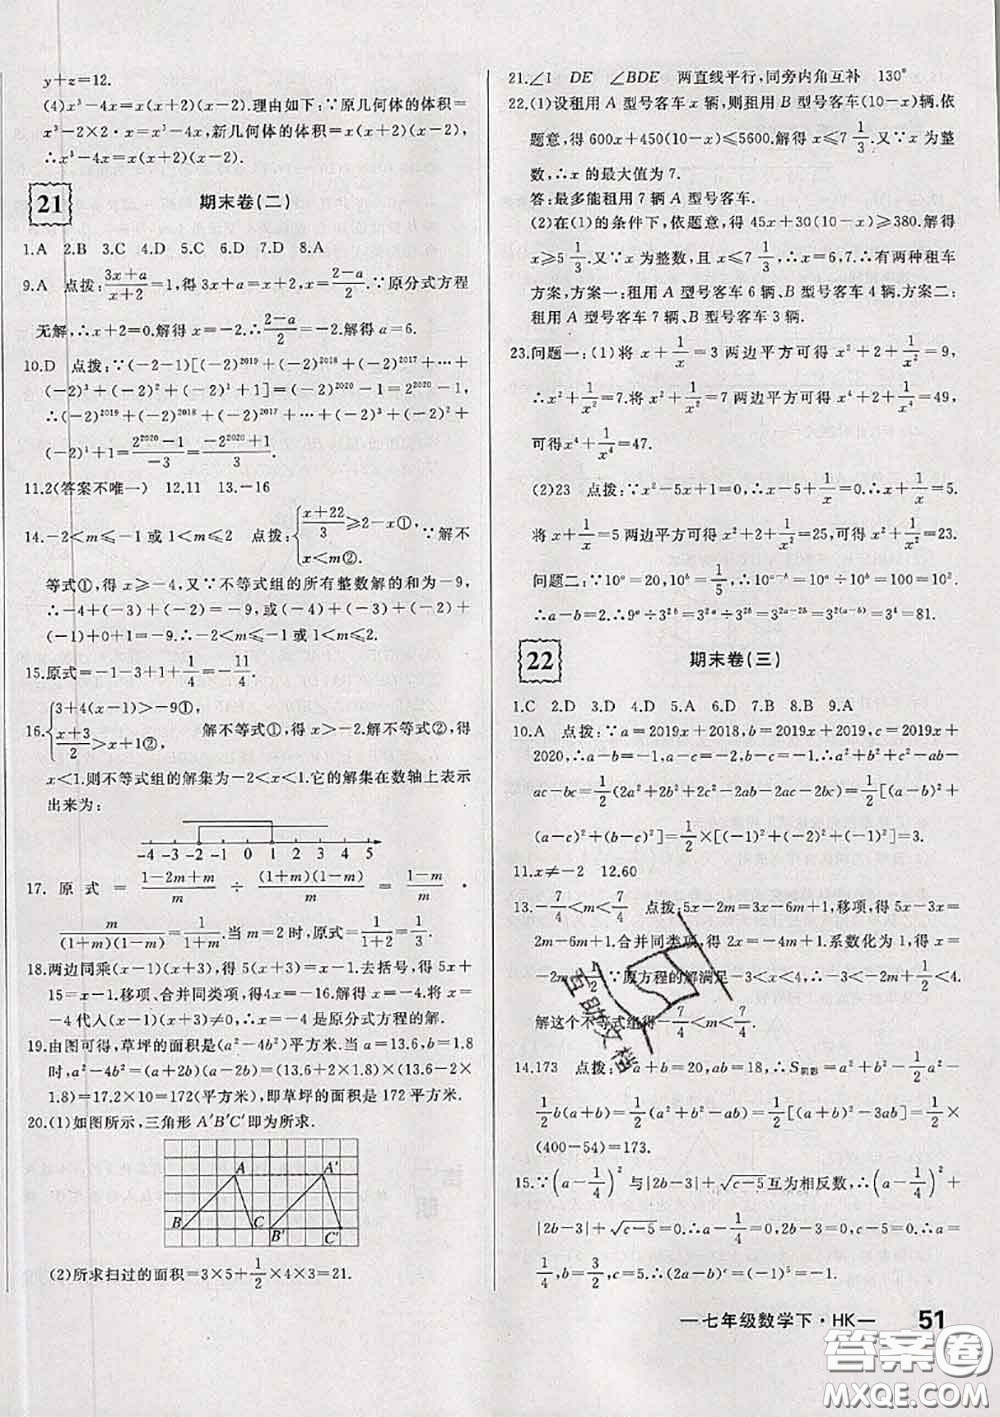 y+z=12.
(4)x³-4x=x(x+2)(x-2).理由如下:∵原几何体的体积=
x³-2×2·x=x³-4x,新几何体的体积=x(x+2)(x-2).
∴x³-4x=x(x+2)(x-2).
21 期末卷(二)
1.A 2.B 3.C 4.D 5.C 6.D 7.D 8.A
9.A 点拨:(3x+a)/(x+2)=1,得3x+a=x+2,x=(2-a)/2.∵原分式方程
无解,∴x+2=0.解得x=-2.∴(2-a)/2=-2.解得a=6.
10.D 点拨:∵(-2-1)[(-2)²⁰¹⁹+(-2)²⁰¹⁸+(-2)²⁰¹⁷+…+
(-2)³+(-2)²+(-2)¹+1]=(-2)²⁰²⁰-1=2²⁰²⁰-1,
∴(-2)²⁰¹⁹+(-2)²⁰¹⁸+(-2)²⁰¹⁷+…+(-2)³+(-2)²+
(-2)¹+1=(2²⁰²⁰-1)/-3=(-2²⁰²⁰+1)/3.
11.2(答案不唯一) 12.11 13.-16
14.-2<m≤-1或1<m≤2 点拨:{(x+22)/3≥2-x①, x<m②. ∵解不
等式①,得x≥-4,又∵不等式组的所有整数解的和为-9,
∴-4+(-3)+(-2)=-9或-4+(-3)+(-2)+
(-1)+0+1=-9.∴-2<m≤-1或1<m≤2.
15.原式=-1-3+1+1/4=-11/4.
16.{3+4(x-1)>-9①, (x+3)/2>x+1②, 解不等式①,得x>-2.解不等式②,得
x<1.则不等式组的解集为-2<x<1.它的解集在数轴上表示
出来为:
-4 -3 -2 -1 0 1 2 3 4 5
17.原式=(1-2m+m)/m÷((1+m)(1-m))/m=(1-m)/m·
m/((1+m)(1-m))=1/(1+m).当m=2时,原式=1/(1+2)=1/3.
18.两边同乘(x-1)(x+3),得5(x+3)=x-1.去括号,得5x+
15=x-1.移项、合并同类项,得4x=-16.解得x=-4.将x=
-4代人(x-1)(x+3)≠0,∴x=-4是原分式方程的解.
19.由图可得,草坪的面积是(a²-4b²)平方米.当a=13.6,b=1.8
时,a²-4b²=(a+2b)(a-2b)=(13.6+2×1.8)(13.6-2×
1.8)=17.2×10=172(平方米),即草坪的面积是172平方米.
20.(1)如图所示,三角形A′B′C′即为所求.
A A′
B C B′ C′
(2)所求扫过的面积=3×5+1/2×4×3=21.
21.∠1 DE ∠BDE 两直线平行,同旁内角互补 130°
22.(1)设租用A型号客车x辆,则租用B型号客车(10-x)辆.依
题意,得600x+450(10-x)≤5600.解得x≤7 1/3.又∵x为整
数,∴x的最大值为7.
答:最多能租用7辆A型号客车.
(2)在(1)的条件下,依题意,得45x+30(10-x)≥380.解得
x≥5 1/3.又∵x为整数,且x≤7 1/3,∴x=6,7.∴有两种租车
方案,方案一:租用A型号客车6辆、B型号客车4辆.方案二:
租用A型号客车7辆、B型号客车3辆.
23.问题一:(1)将x+1/x=3两边平方可得x²+2+1/x²=9,
∴x²+1/x²=7.将x²+1/x²=7两边平方可得x⁴+2+1/x⁴=49,
可得x⁴+1/x⁴=47.
(2)23 点拨:∵x²-5x+1=0,∴x-5+1/x=0.∴x+1/x=5.
将x+1/x=5两边平方可得x²+2+1/x²=25,可得x²+1/x²=23.
问题二:∵10ᵃ=20,10ᵇ=1/5,∴10ᵃ⁻ᵇ=10ᵃ÷10ᵇ=100=10².
∴a-b=2.∴9ᵃ÷3²ᵇ=3²ᵃ÷3²ᵇ=3²ᵃ⁻²ᵇ=3²⁽ᵃ⁻ᵇ⁾=3⁴=81.
22 期末卷(三)
1.C 2.D 3.D 4.D 5.A 6.D 7.B 8.B 9.A
10.A 点拨:∵a=2019x+2018,b=2019x+2019,c=2019x+
2020,∴a-b=-1,a-c=-2,b-c=-1.∴a²+b²+c²-ab-
ac-bc=1/2(2a²+2b²+2c²-2ab-2ac-2bc)=1/2[(a-b)²+
(a-c)²+(b-c)²]=1/2×[(-1)²+(-2)²+(-1)²]=3.
11.x≠-2 12.60
13.-7/4<m<7/4 点拨:5x-2m=3x-6m+1,移项,得5x-3x=
2m-6m+1.合并同类项,得2x=-4m+1.系数化为1,得x=
-2m+1/2.∵原方程的解满足-3<x<4.∴-3<-2m+1/2<4.
解这个不等式组得-7/4<m<7/4.
14.173 点拨:∵a+b=20,ab=18,∴S阴影=a²+b²-1/2a²-
1/2b(a+b)=1/2(a²+b²-ab)=1/2[(a+b)²-3ab]=1/2×
(400-54)=173.
15.∵(a-1/4)²与|2b-3|+√(c-5)互为相反数,∴(a-1/4)²+
|2b-3|+√(c-5)=0.∴a-1/4=0,2b-3=0,c-5=0.∴a=
1/4,b=3/2,c=5.∴(2a-b)ᶜ=(-1)⁵=-1.
—七年级数学下·HK— 51
互助文档
答案圈
MXQE.COM